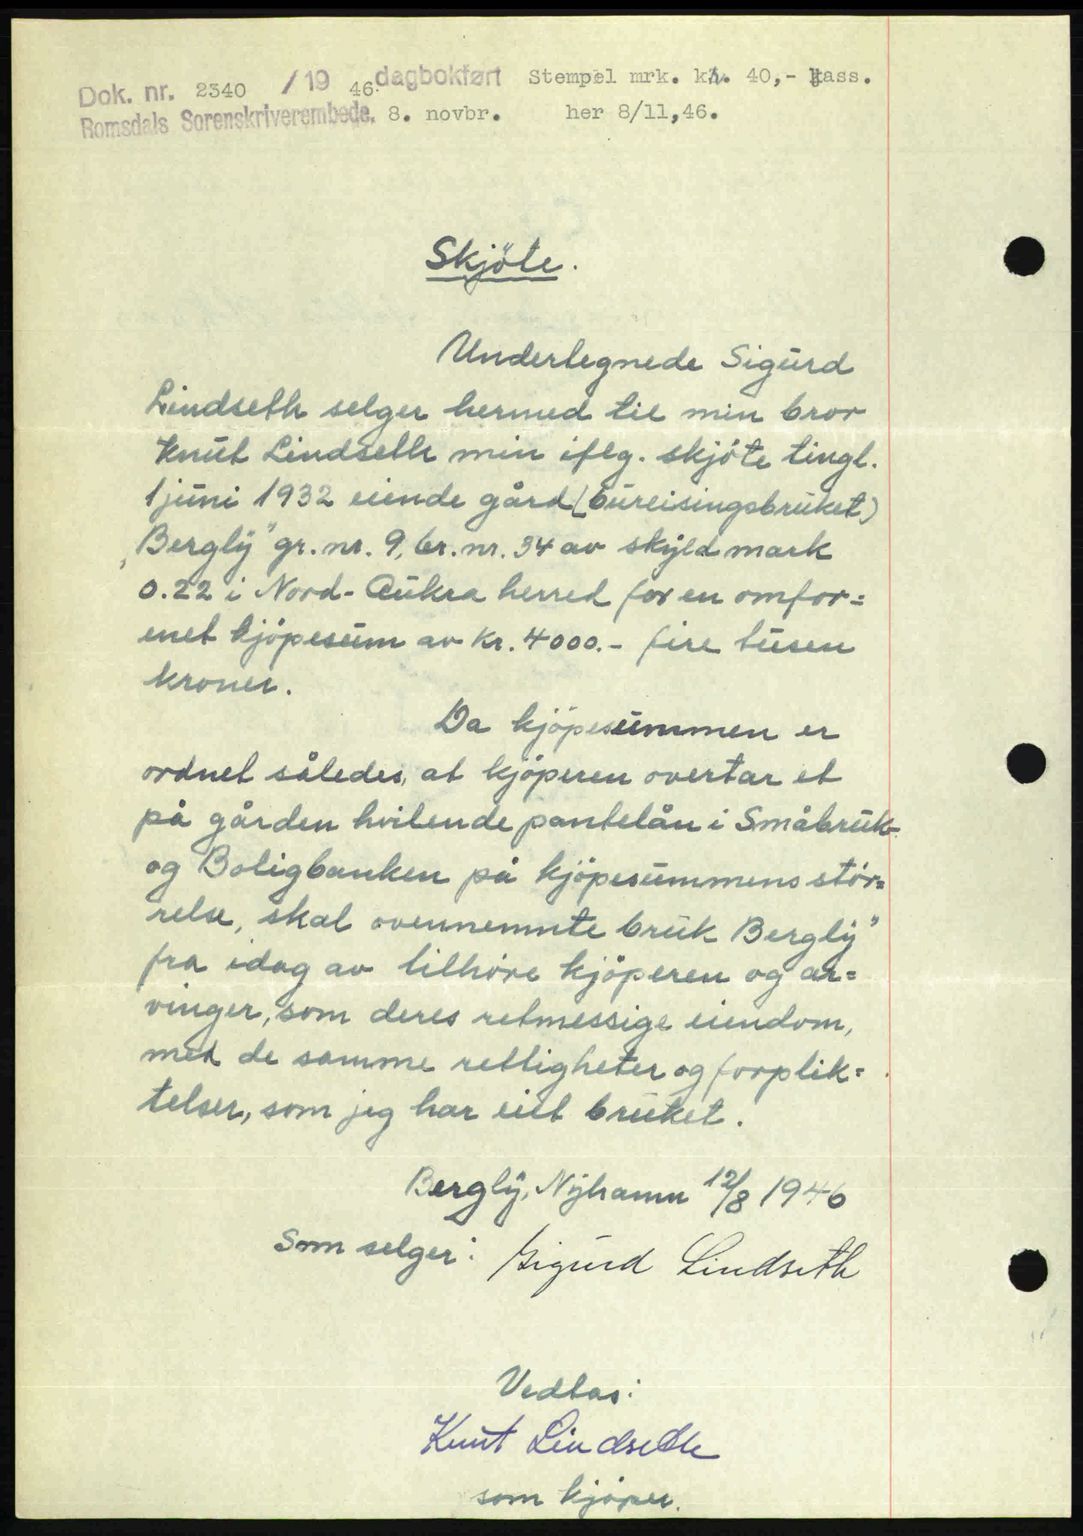 Dok. nr. 2340 /19 46. dagbokført Stempel mrk. kr. 40,- kass.
Romsdals Sorenskriverembede. 8. novbr. her 8/11,46.
Skjöte.
Underlegnede Sigurd
Lindseth selger hermed til min bror
Knut Lindseth min iflg. skjöte tingl.
1 juni 1932 eiende gård (bureisingsbruket)
„Bergly" gr. nr. 9, br. nr. 34 av skyld mark
0.22 i Nord-Aukra herred for en omfor=
enet kjöpesum av Kr. 4000.- fire tusen
kroner.
Da kjöpesummen er
ordnet således, at kjöperen overtar et
på gården hvilende pantelån i Småbruk-
og Boligbanken på kjöpesummens stör=
relse, skal ovennemnte bruk Bergly"
fra idag av tilhöre kjöperen og ar=
vinger, som deres retmessige eiendom,
med de samme rettigheter og forplik=
telser, som jeg har eiet bruket.
Bergly, Nyhamn 12/8 1946
Som selger: Sigurd Lindseth
Vedtas:
Knut Lindseth
som kjöper.